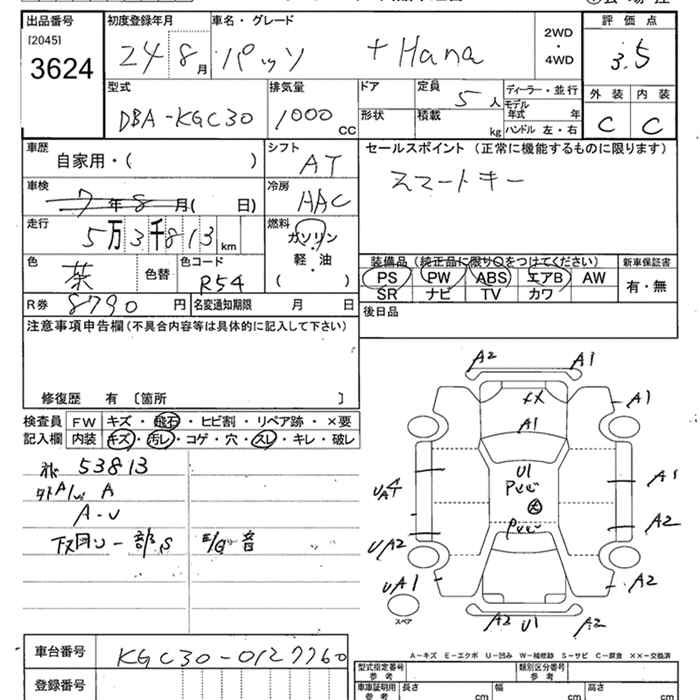 出品番号
[2045]
3624
初度登録年月
24 8月
車名・グレード
パッソ +Hana
2WD
・
4WD
評価点
3.5
外装 内装
C C
型式
DBA-KGC30
排気量
1000 cc
ドア
形状
定員
5人
積載
kg
ディーラー・並行
モデル年式 年
ハンドル 左・右
車歴
自家用・( )
シフト
AT
セールスポイント (正常に機能するものに限ります)
スマートキー
車検
7年8月( 日)
冷房
AAC
走行
5万3千813km
燃料
ガソリン
軽・油
( )
色
茶
色替
色コード
R54
装備品 (純正品に限り○をつけてください)
PS PW ABS エアB AW
SR ナビ TV カワ
新車保証書
有・無
R券
8790円
名変通知期限 月 日
後日品
注意事項申告欄(不具合内容等は具体的に記入して下さい)
修復歴 有 〔箇所 〕
検査員
記入欄
FW キズ・飛石・ヒビ割・リペア跡・×要
内装 キズ・汚レ・コゲ・穴・スレ・キレ・破レ
53813
A
A-U
下回り一部S
音
A2 A1
A1
A1
U1
A1
A2
UA2
UA1
A2
A2 U1 A2
スペア
A-キズ E-エクボ U-凹み W-補修跡 S-サビ C-腐食 ××-交換済
車台番号
KGC30-0127760
登録番号
型式指定番号
参考
類別区分番号
参考
車庫証明用
参考
長さ cm
幅 cm
高さ cm